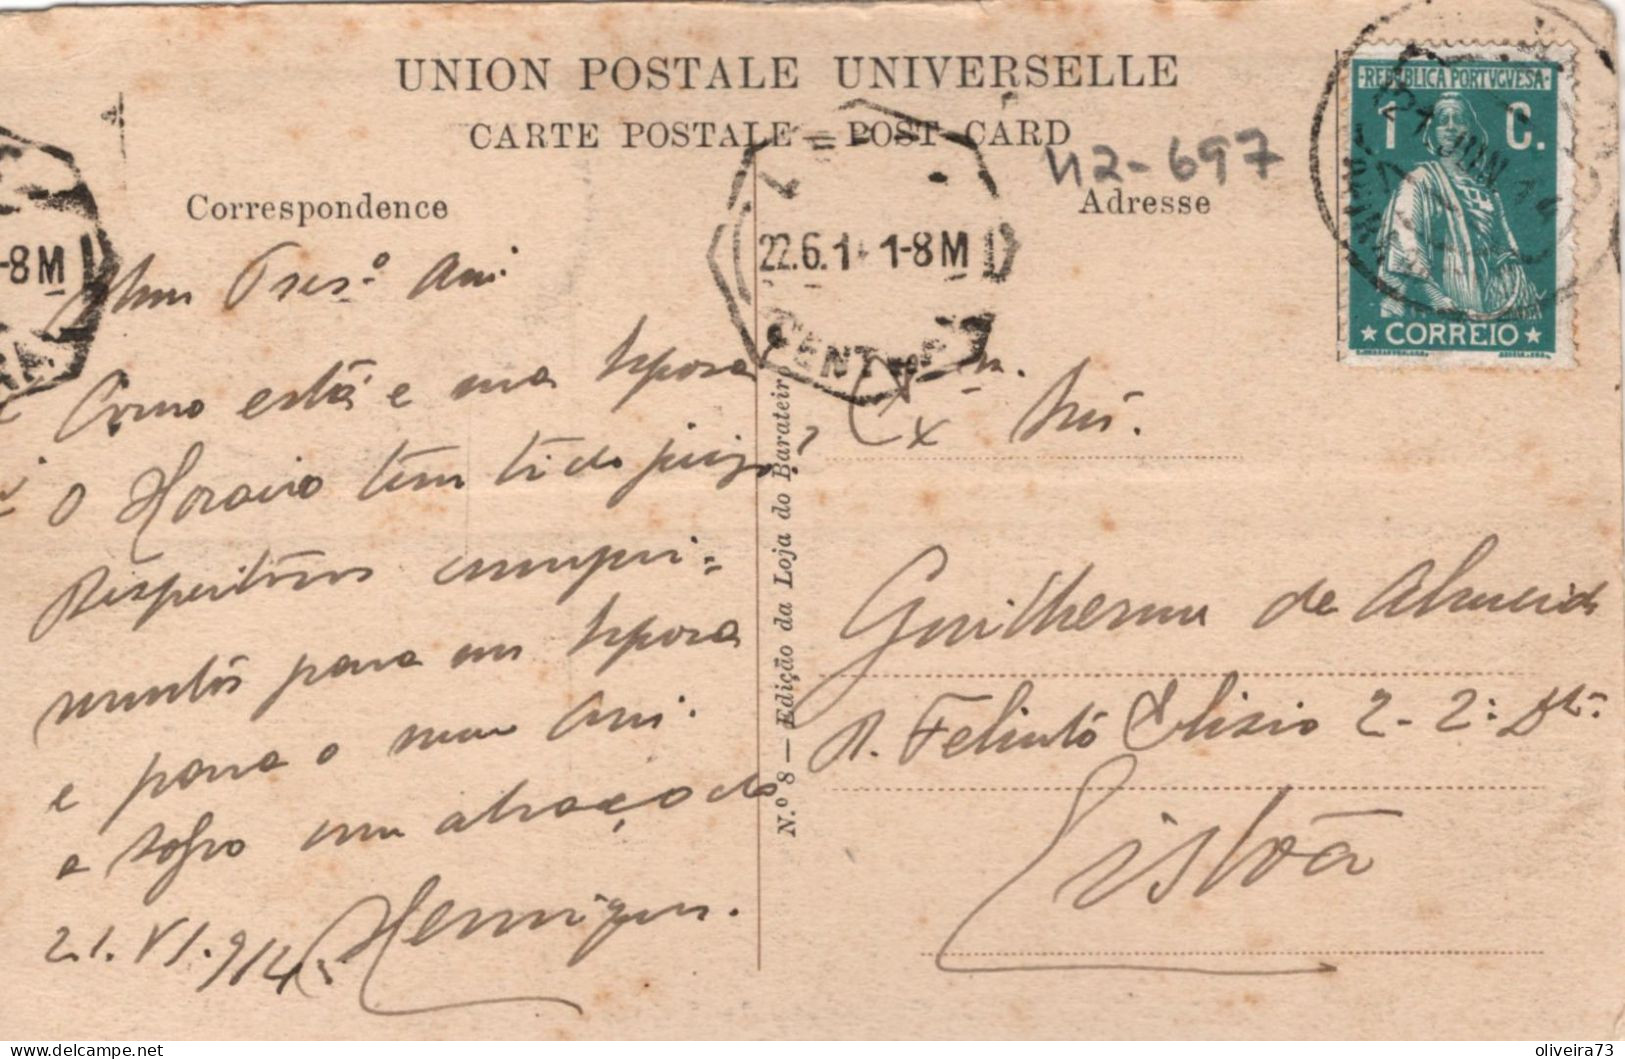 UNION POSTALE UNIVERSELLE
CARTE POSTALE = POST CARD
42-697
Correspondence
Adresse
-8M
22.6.1 1-8M
CENTRAL
REPUBLICA PORTVGVESA
1 C.
CORREIO
21 JUN 14
Meu Pres.º Ami.
Como está e sua Esposa?
O Horacio tem tido juizo?
Respeitosos cumpri=
mentos para sua Esposa
e para o meu Ami.
a sogro um abraço do
Henrique.
21.VI.914
N.º 8 — Edição da Loja do Barateiro
Ex.mº Snr.
Guilherme de Almeida
R. Felinto Elisio 2-2º Dtº.
Lisbôa
oliveira73